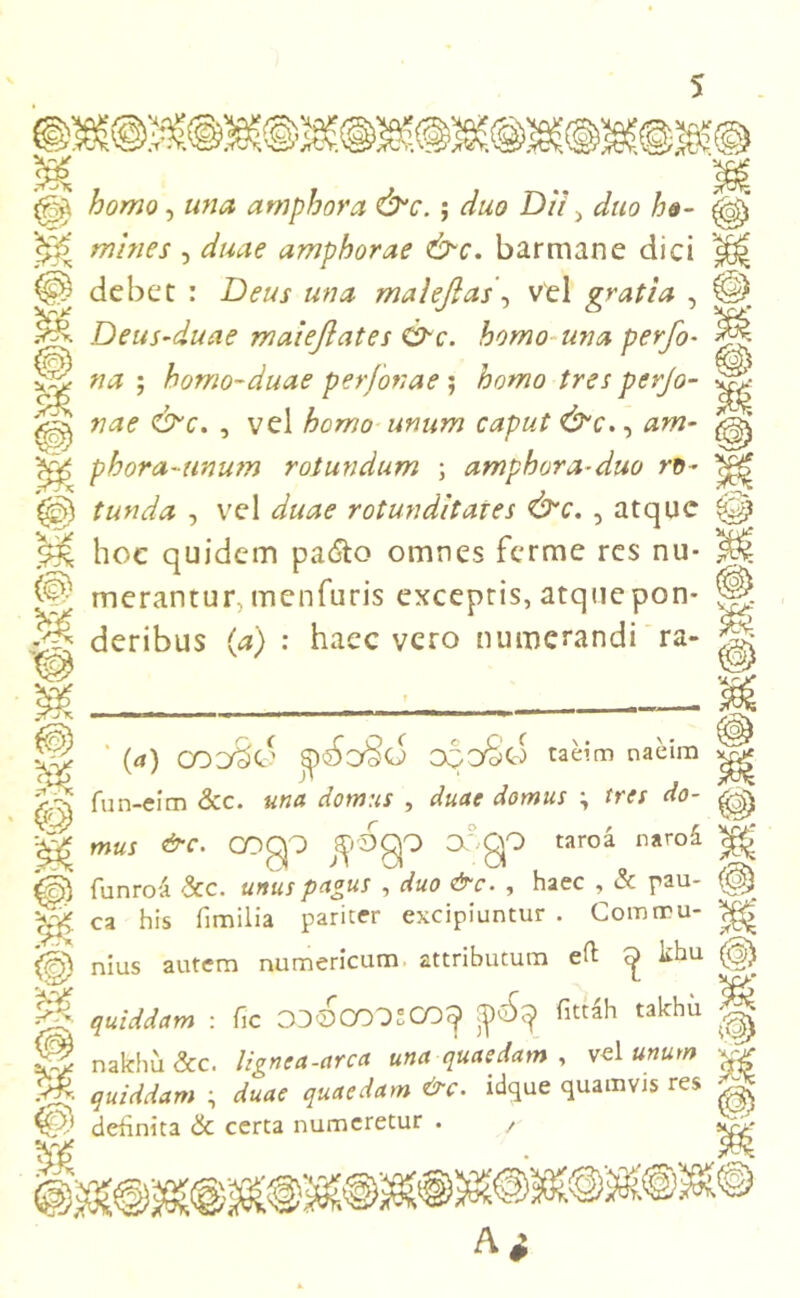 5
homo, una amphora &c. ; duo Dii, duo ho-
mines, duae amphorae &c. barmane dici
debet : Deus una maieſtas, vel gratia,
Deus-duae maieſtates &c. homo una perſo-
na ; homo-duae perſonae ; homo tres perſo-
nae &c., vel homo unum caput &c., am-
phora-unum rotundum ; amphora-duo ro-
tunda, vel duae rotunditates &c., atque
hoc quidem pacto omnes ferme res nu-
merantur, menſuris exceptis, atque pon-
deribus (a) : haec vero numerandi ra-
(a) taèim naèim
ſun-eim &c. una domus, duae domus ; tres do-
mus &c. taroá naroá
ſunroá &c. unus pagus, duo &c., haec, & pau-
ca his ſimilia pariter excipiuntur. Commu-
nius autem numericum attributum eſt khu
quiddam : ſic ſittáh takhù
nakhù &c. lignea-arca una quaedam, vel unum
quiddam ; duae quaedam &c. idque quamvis res
definita & certa numeretur.
A